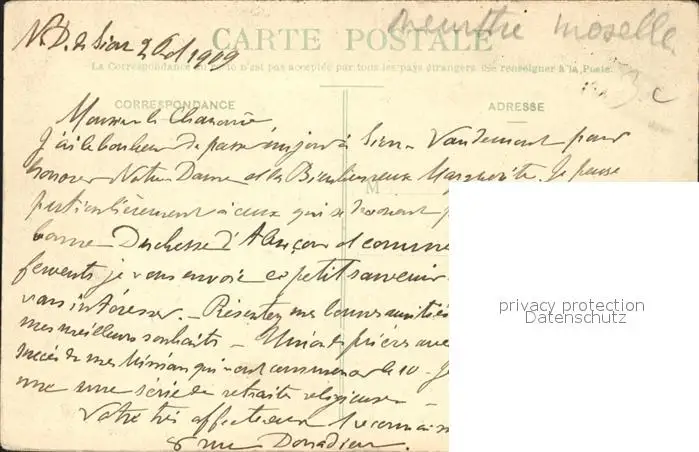 N.D. de Sion 2 Oct 1909
Meurthe Moselle
CARTE POSTALE
La Correspondance au recto n'est pas acceptée par tous les pays étrangers. (Se renseigner à la Poste.
3 c
CORRESPONDANCE
ADRESSE
Monsieur le Chanoine
J'ai le bonheur de passer un jour à Sion-Vaudémont pour
honorer Notre Dame et la Bienheureuse Marguerite. Je pense
particulièrement à ceux qui se dévouent
bonne Duchesse d'Alençon et comme
M
fervents je vous envoie ce petit souvenir
vous intéresser. _ Présentez mes bonnes amitiés
mes meilleurs souhaits _ Union de prières avec
succès de mes missions qui vont commencer le 10 _ Je
une une série de retraites religieuses _
Votre très affectueux reconnaiss
8 rue Donadieu.
privacy protection
Datenschutz